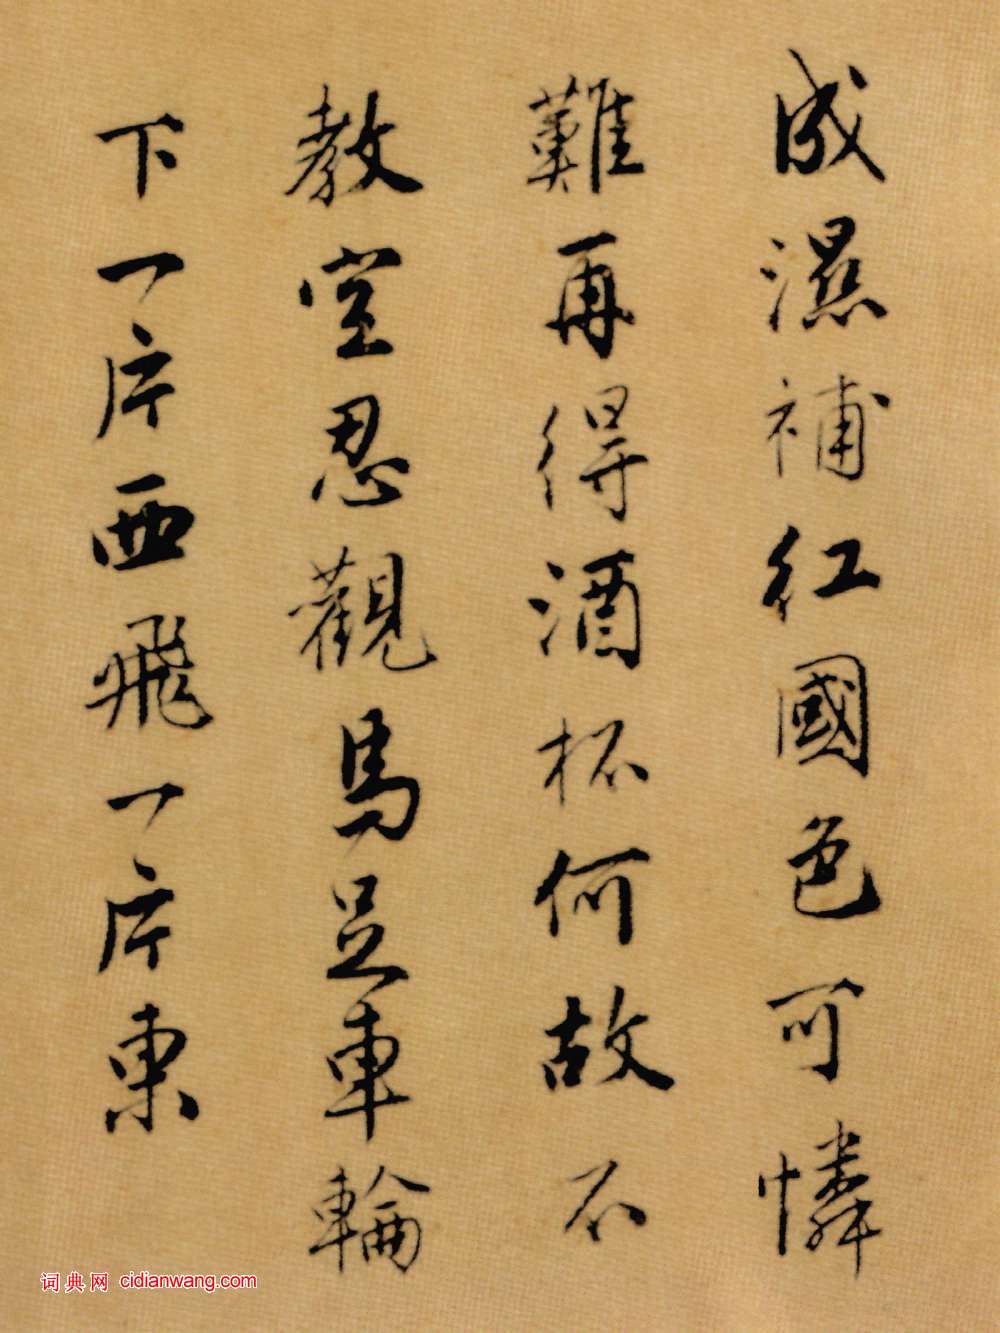 成濕補紅國色可憐
難再得酒杯何故不
教空忍觀馬足車輪
下一片西飛一片東
词典网 cidianwang.com